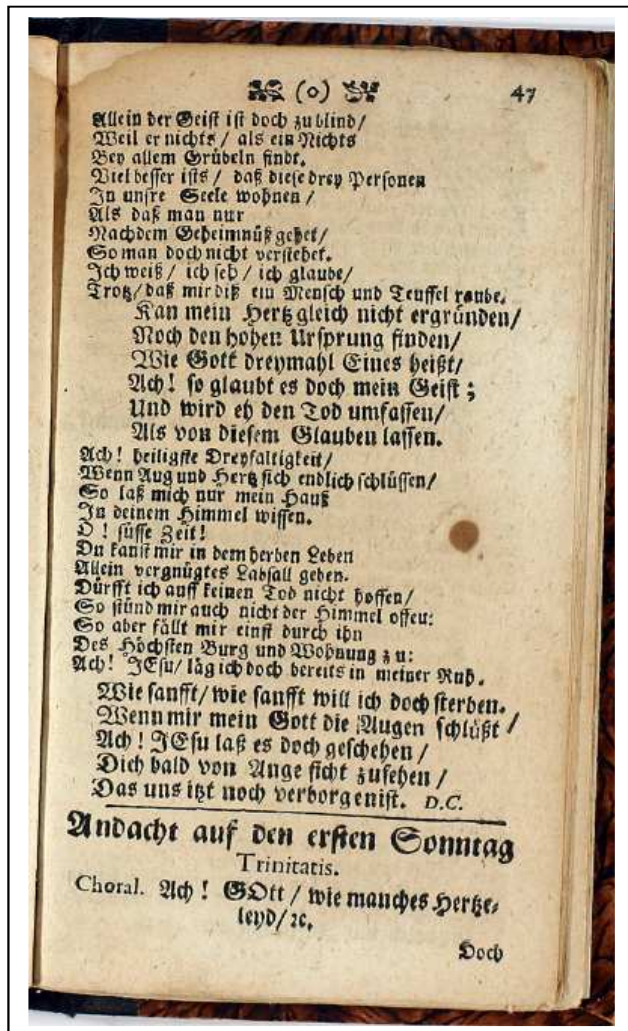 (o) 47
Allein der Geist ist doch zu blind/
Weil er nichts / als ein Nichts
Bey allem Grübeln findt.
Viel besser ists / daß diese drey Personen
In unsre Seele wohnen /
Als daß man nur
Nachdem Geheimnüß gehet/
So man doch nicht verstehet.
Ich weiß / ich seh / ich glaube/
Trotz/ daß mir diß ein Mensch und Teuffel raube.
Kan mein Hertz gleich nicht ergründen/
Noch den hohen Ursprung finden/
Wie Gott dreymahl Eines heißt/
Ach! so glaubt es doch mein Geist;
Und wird eh den Tod umfassen/
Als von diesem Glauben lassen.
Ach! heiligste Dreyfaltigkeit/
Wenn Aug und Hertz sich endlich schlüssen/
So laß mich nur mein Hauß
In deinem Himmel wissen.
O ! süsse Zeit!
Du kanst mir in dem herben Leben
Allein vergnügtes Labsall geben.
Dürfft ich auff keinen Tod nicht hoffen/
So stünd mir auch nicht der Himmel offeu:
So aber fällt mir einst durch ihn
Des Höchsten Burg und Wohnung zu:
Ach! JEsu/ läg ich doch bereits in meiner Ruh.
Wie sanfft/ wie sanfft will ich doch sterben.
Wenn mir mein Gott die Augen schlüßt /
Ach ! JEsu laß es doch geschehen /
Dich bald von Ange sicht zusehen /
Das uns itzt noch verborgenist. D.C.
Andacht auf den ersten Sonntag
Trinitatis.
Choral. Ach ! GOtt / wie manches Hertze-
leyd/ ꝛc.
Doch